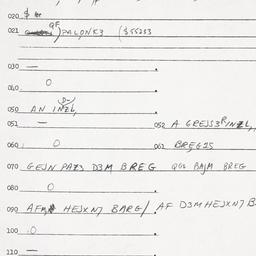 020 $
021 QF) PALONK3 ($55253
030 —
040 O
050 AN INZL,
051 — 052 A GREJS3PINZL,,
060 O 061 BREG2S
070 GEJN PAZ3 D3M BREG QGS BAJM BREG
080 O
090 HEJXN7 BARG/ AF D3M HEJXN7
100 O
110 —